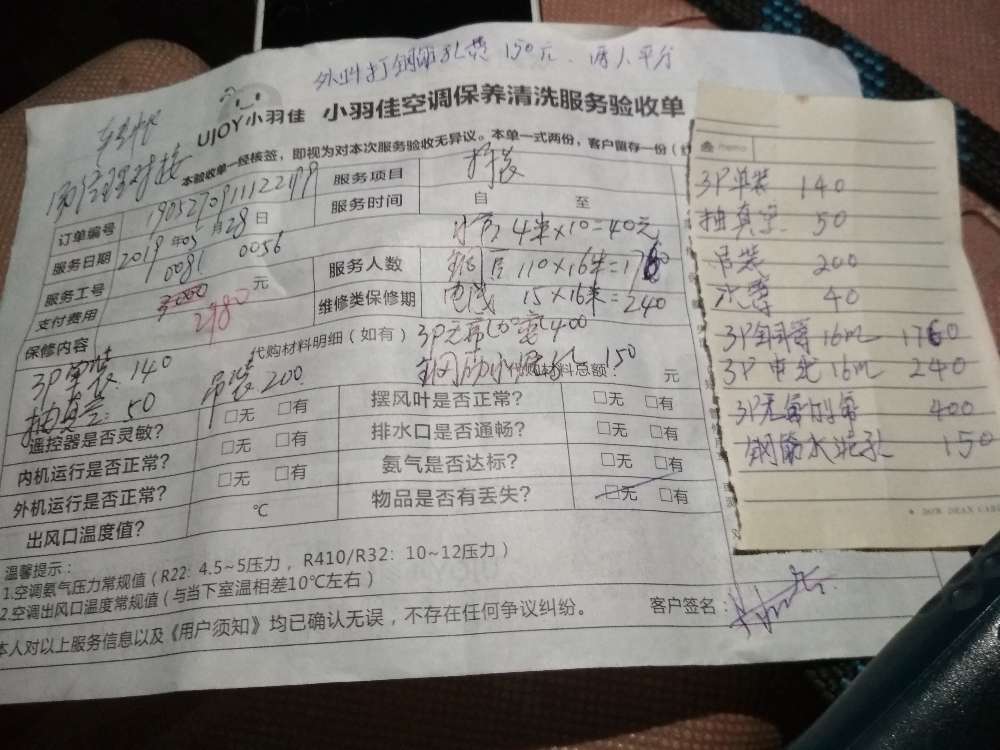 外料打钢筋孔费150元
UJOY小羽佳 小羽佳空调保养清洗服务验收单
本验收单一经核签，即视为对本次服务验收无异议。本单一式两份，客户留存一份（
订单编号 服务项目
服务日期 2019年05月28日 服务时间 自 至
水管4米×10=40元
服务工号 0081 0056 服务人数 铜管110×16米=1760
支付费用 2980 元 维修类保修期 电线 15×16米=240
保修内容 代购材料明细(如有) 3P无痕 400
3P单装140 吊装200 代购材料总额： 150 元
抽真空：50
遥控器是否灵敏？ □无 □有 摆风叶是否正常？ □无 □有
内机运行是否正常？ □无 □有 排水口是否通畅？ □无 □有
外机运行是否正常？ □无 □有 氨气是否达标？ □无 □有
出风口温度值？ ℃ 物品是否有丢失？ □无 □有
温馨提示：
1.空调氨气压力常规值（R22: 4.5~5压力，R410/R32：10~12压力）
2.空调出风口温度常规值（与当下室温相差10℃左右）
本人对以上服务信息以及《用户须知》均已确认无误，不存在任何争议纠纷。 客户签名：
3P单装 140
抽真空 50
吊装 200
水管 40
3P铜管16m 1760
3P电线16m 240
400
钢筋水泥孔 150